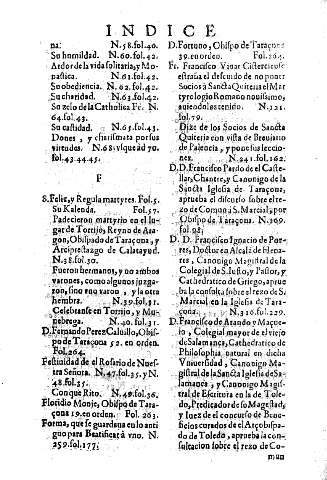 INDICE
na. N.58.fol.40.
Su humildad. N.60.fol.42.
Ardor de la vida solitaria, y Mo-
nastica. N.61.fol.42.
Su obediencia. N.62.fol.42.
Su charidad. N.63.fol.42.
Su zelo de la Catholica Fè. N.
64.fol.43.
Su castidad. N.65.fol.43.
Dones, y charismata por sus
virtudes. N.68. vsque ad 70.
fol.43.44.45.
F
S. Felix, y Regula martyres. Fol.5.
Su Kalenda. Fol.57.
Padecieron martyrio en el lu-
gar de Torrijo, Reyno de Ara-
gon, Obispado de Taraçona, y
Arciprestazgo de Calatayud.
N.38.fol.30.
Fueron hermanos, y no ambos
varones, como algunos juzga-
ron, sino vno varon, y la otra
hembra. N.39.fol.31.
Celebranse en Torrijo, y Mu-
nebrega. N.40.fol.31.
D. Fernando Perez Calvillo, Obis-
po de Taraçona 52. en orden.
Fol.264.
Festividad de el Rosario de Nues-
tra Señora. N.47.fol.35. y N.
48.fol.35.
Con que Rito. N.49.fol.36.
Floridio Monje, Obispo de Tara-
çona 19. en orden. Fol.263.
Forma, que se guardava en lo anti
guo para Beatificar à vno. N.
259.fol.177.
D. Fortuno, Obispo de Taraçona
39. en orden. Fol.264.
Fr. Francisco Vivar Cisterciense
estraña el descuido de no poner
Socios à Sancta Quiteria el Mar
tyrologio Romano novissimo,
aviendolos tenido. N.121.
fol.79.
Dize de los Socios de Sancta
Quiteria con vista de Breviario
de Palencia, y pone sus leccio-
nes. N.241.fol.162.
D.D. Francisco Pardo de el Caste-
llar, Chantre, y Canonigo de la
Sancta Iglesia de Taraçona,
aprueba el discurso sobre el re-
zo de Comun à S. Marcial, por
Obispo de Taraçona. N.309.
fol.98.
D. D. Francisco Ignacio de Por-
res, Doctor en Alcalà de Hena-
res, Canonigo Magistral de la
Colegial de S. Iusto, y Pastor, y
Cathedratico de Griego, aprue
ba la consulta sobre el rezo de S.
Marcial en la Iglesia de Tara-
çona. N.316.fol.229.
D. Francisco de Arando y Maçue-
lo, Colegial mayor de el viejo
de Salamanca, Cathedratico de
Philosophia natural en dicha
Vniversidad, Canonigo Ma-
gistral de la Sancta Iglesia de Sa-
lamanca, y Canonigo Magis-
tral de Escritura en la de Tole-
do, Predicador de su Magestad,
y Iuez de el concurso de Bene-
ficios curados de el Arçobispa-
do de Toledo, aprueba la con-
sultacion sobre el rezo de Co-
mun